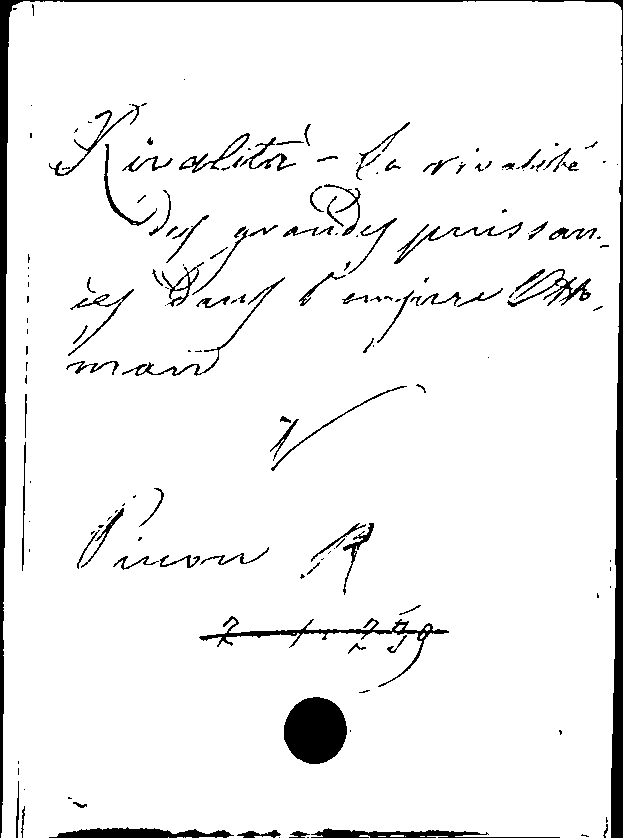 Rivalité - La rivalité
des grandes puissan-
ces dans l'empire Otto-
man
V
Pinon R
2 - 1 - 259